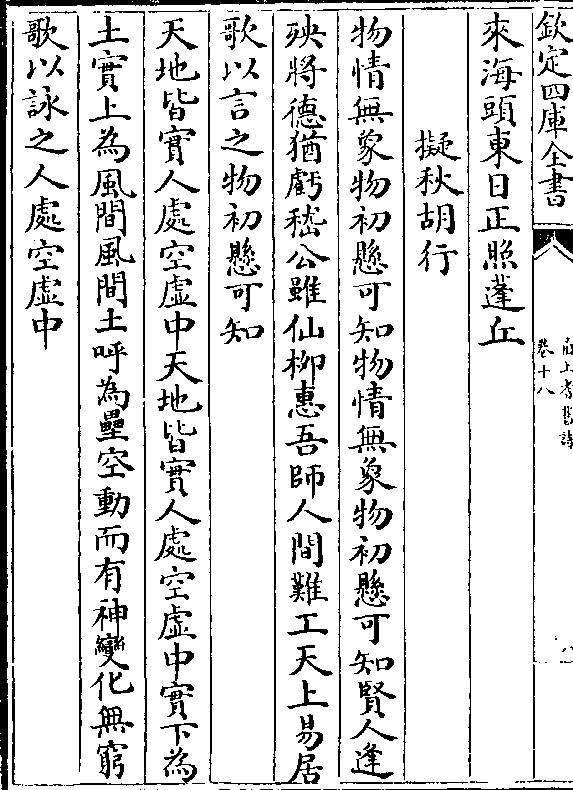 欽定四庫全書
卷十八
來海頭東日正照蓬丘
擬秋胡行
物情無象物初懸可知物情無象物初懸可知賢人逢
殃將德猶虧嵇公雖仙柳惠吾師人間難工天上易居
歌以言之物初懸可知
天地皆實人處空虛中天地皆實人處空虛中實下為
土實上為風間風間土呼為壘空動而有神變化無窮
歌以詠之人處空虛中